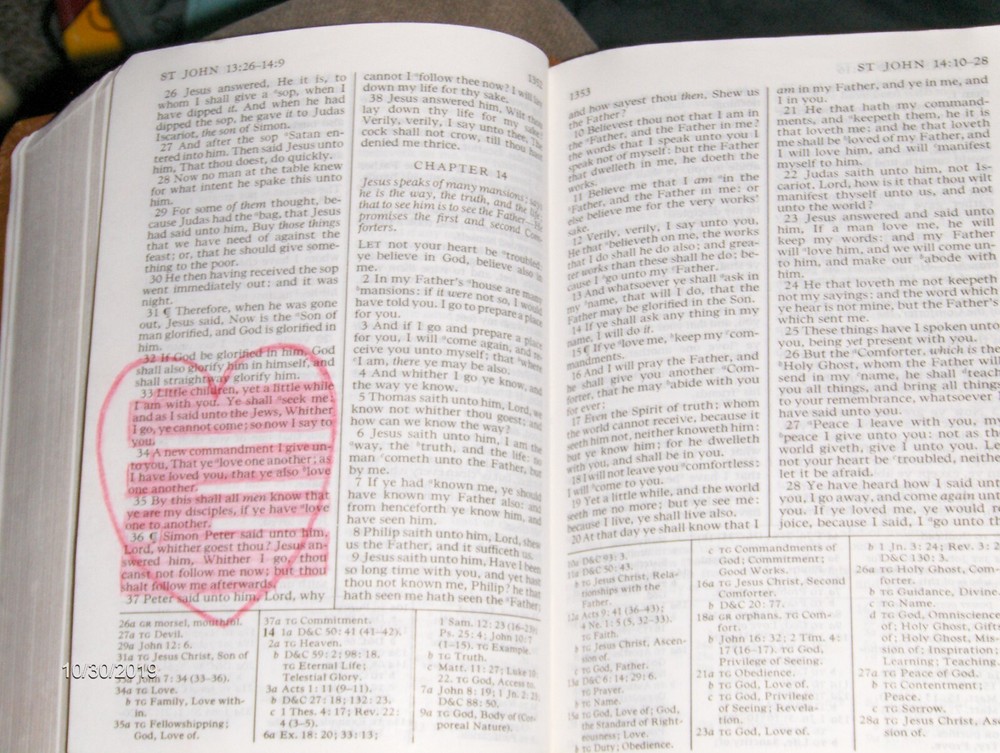 ST JOHN 13:26-14:9
26 Jesus answered, He it is, to
whom I shall give a sop, when I
have dipped it. And when he had
dipped the sop, he gave it to Judas
Iscariot, the son of Simon.
27 And after the sop Satan en-
tered into him. Then said Jesus unto
him, That thou doest, do quickly.
28 Now no man at the table knew
for what intent he spake this unto
him.
29 For some of them thought, be-
cause Judas had the bag, that Jesus
had said unto him, Buy those things
that we have need of against the
feast; or, that he should give some-
thing to the poor.
30 He then having received the sop
went immediately out: and it was
night.
31 ¶ Therefore, when he was gone
out, Jesus said, Now is the Son of
man glorified, and God is glorified in
him.
32 If God be glorified in him, God
shall also glorify him in himself, and
shall straightway glorify him.
33 Little children, yet a little while
I am with you. Ye shall seek me:
and as I said unto the Jews, Whither
I go, ye cannot come; so now I say to
you.
34 A new commandment I give un-
to you, That ye love one another; as
I have loved you, that ye also love
one another.
35 By this shall all men know that
ye are my disciples, if ye have love
one to another.
36 ¶ Simon Peter said unto him,
Lord, whither goest thou? Jesus an-
swered him, Whither I go, thou
canst not follow me now; but thou
shalt follow me afterwards.
37 Peter said unto him, Lord, why
1352
cannot I follow thee now? I will lay
down my life for thy sake.
38 Jesus answered him, Wilt thou
lay down thy life for my sake?
Verily, verily, I say unto thee, The
cock shall not crow, till thou hast
denied me thrice.
CHAPTER 14
Jesus speaks of many mansions; says
he is the way, the truth, and the life;
that to see him is to see the Father—He
promises the first and second Com-
forters.
LET not your heart be troubled:
ye believe in God, believe also in
me.
2 In my Father's house are many
mansions: if it were not so, I would
have told you. I go to prepare a place
for you.
3 And if I go and prepare a place
for you, I will come again, and re-
ceive you unto myself; that where
I am, there ye may be also.
4 And whither I go ye know, and
the way ye know.
5 Thomas saith unto him, Lord, we
know not whither thou goest; and
how can we know the way?
6 Jesus saith unto him, I am the
way, the truth, and the life: no
man cometh unto the Father, but
by me.
7 If ye had known me, ye should
have known my Father also: and
from henceforth ye know him, and
have seen him.
8 Philip saith unto him, Lord, shew
us the Father, and it sufficeth us.
9 Jesus saith unto him, Have I been
so long time with you, and yet hast
thou not known me, Philip? he that
hath seen me hath seen the Father;
26a GR morsel, mouthful.
27a TG Devil.
29a John 12: 6.
31a TG Jesus Christ, Son of
John 7: 34 (33-36).
34a TG Love.
b TG Family, Love with-
in.
35a TG Fellowshipping;
God, Love of.
37a TG Commitment.
14 1a D&C 50: 41 (41-42).
2a TG Heaven.
b D&C 59: 2; 98: 18.
TG Eternal Life;
Telestial Glory.
3a Acts 1: 11 (9-11).
b D&C 27: 18; 132: 23.
c 1 Thes. 4: 17; Rev. 22:
4 (3-5).
6a Ex. 18: 20; 33: 13;
1 Sam. 12: 23
Ps. 25: 4; John 10: 7
(1-15). TG Example.
b TG Truth.
c Matt. 11: 27; Luke 10:
22. TG God, Access to.
7a John 8: 19; 1 Jn. 2: 23;
D&C 88: 50.
9a TG God, Body of (Cor-
poreal Nature).
10/30/2019
1353
ST JOHN 14:10-28
and how sayest thou then, Shew us
the Father?
10 Believest thou not that I am in
the Father, and the Father in me?
the words that I speak unto you I
speak not of myself: but the Father
that dwelleth in me, he doeth the
works.
11 Believe me that I am in the
Father, and the Father in me: or
else believe me for the very works'
sake.
12 Verily, verily, I say unto you,
He that believeth on me, the works
that I do shall he do also; and grea-
ter works than these shall he do; be-
cause I go unto my Father.
13 And whatsoever ye shall ask in
my name, that will I do, that the
Father may be glorified in the Son.
14 If ye shall ask any thing in my
name, I will do it.
15 ¶ If ye love me, keep my com-
mandments.
16 And I will pray the Father, and
he shall give you another Com-
forter, that he may abide with you
for ever;
17 Even the Spirit of truth; whom
the world cannot receive, because it
seeth him not, neither knoweth him:
but ye know him; for he dwelleth
with you, and shall be in you.
18 I will not leave you comfortless:
I will come to you.
19 Yet a little while, and the world
seeth me no more; but ye see me:
because I live, ye shall live also.
20 At that day ye shall know that I
am in my Father, and ye in me, and
I in you.
21 He that hath my command-
ments, and keepeth them, he it is
that loveth me: and he that loveth
me shall be loved of my Father, and
I will love him, and will manifest
myself to him.
22 Judas saith unto him, not Is-
cariot, Lord, how is it that thou wilt
manifest thyself unto us, and not
unto the world?
23 Jesus answered and said unto
him, If a man love me, he will
keep my words: and my Father
will love him, and we will come un-
to him, and make our abode with
him.
24 He that loveth me not keepeth
not my sayings: and the word which
ye hear is not mine, but the Father's
which sent me.
25 These things have I spoken unto
you, being yet present with you.
26 But the Comforter, which is the
Holy Ghost, whom the Father will
send in my name, he shall teach
you all things, and bring all things
to your remembrance, whatsoever I
have said unto you.
27 Peace I leave with you, my
peace I give unto you: not as the
world giveth, give I unto you. Let
not your heart be troubled, neither
let it be afraid.
28 Ye have heard how I said unto
you, I go away, and come again unto
you. If ye loved me, ye would re-
joice, because I said, I go unto the
10a D&C 93: 3.
D&C 50: 43.
TG Jesus Christ, Rela-
tionships with the
Father.
12a Acts 9: 41 (36-43);
4 Ne. 1: 5 (5, 32-33).
TG Faith.
TG Jesus Christ, Ascen-
sion of.
TG God, Father.
13a D&C 6: 14; 29: 6.
TG Prayer.
TG Name.
15a TG God, Love of; God,
the Standard of Right-
eousness; Love.
b TG Duty; Obedience.
c TG Commandments of
God; Commitment;
Good Works.
16a TG Jesus Christ, Second
Comforter.
b D&C 20: 77.
18a GR orphans. TG Com-
fort.
b John 16: 32; 2 Tim. 4:
17 (16-17). TG God,
Privilege of Seeing.
21a TG Obedience.
b TG God, Love of.
c TG God, Privilege
of Seeing; Revela-
tion.
23a TG God, Love of.
b 1 Jn. 3: 24; Rev. 3: 2
D&C 130: 3.
26a TG Holy Ghost, Com-
forter.
b TG Guidance, Divine.
c TG Name.
d TG God, Omniscience
of; Holy Ghost, Gifts
of; Holy Ghost, Mis-
sion of; Inspiration;
Learning; Teaching.
27a TG Peace of God.
b TG Contentment;
Peace.
c TG Sorrow.
28a TG Jesus Christ, As
sion of.